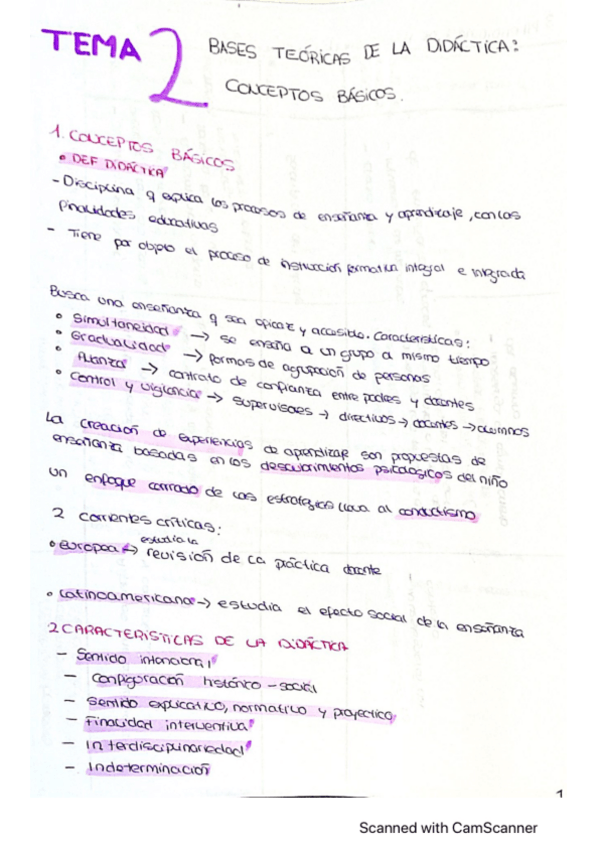 TEMA 2 BASES TEÓRICAS DE LA DIDÁCTICA:
CONCEPTOS BÁSICOS.
1. CONCEPTOS BÁSICOS
• DEF DIDÁCTICA
- Disciplina q explica los procesos de enseñanza y aprendizaje, con las
finalidades educativas
- Tiene por objeto el proceso de instrucción formativa integral e integrada
Busca una enseñanza q sea eficaz y accesible. Características:
• Simultaneidad -> se enseña a un grupo a mismo tiempo
• Gradualidad -> formas de agrupación de personas
• Alianza -> contrato de confianza entre padres y docentes
• Control y vigilancia -> supervisores -> directivos -> docentes -> alumnos
La creación de experiencias de aprendizaje son propuestas de
enseñanza basadas en los descubrimientos psicológicos del niño
Un enfoque cerrado de las estrategias lleva al conductismo
2 corrientes críticas:
• Europea -> estudia la revisión de la práctica docente
• Latinoamericana -> estudia el efecto social de la enseñanza
2 CARACTERISTICAS DE LA DIDÁCTICA
- Sentido intencional
- Configuración histórico-social
- Sentido explicativo, normativo y proyectivo
- Finalidad interventiva
- Interdisciplinariedad
- Indeterminación
1
Scanned with CamScanner